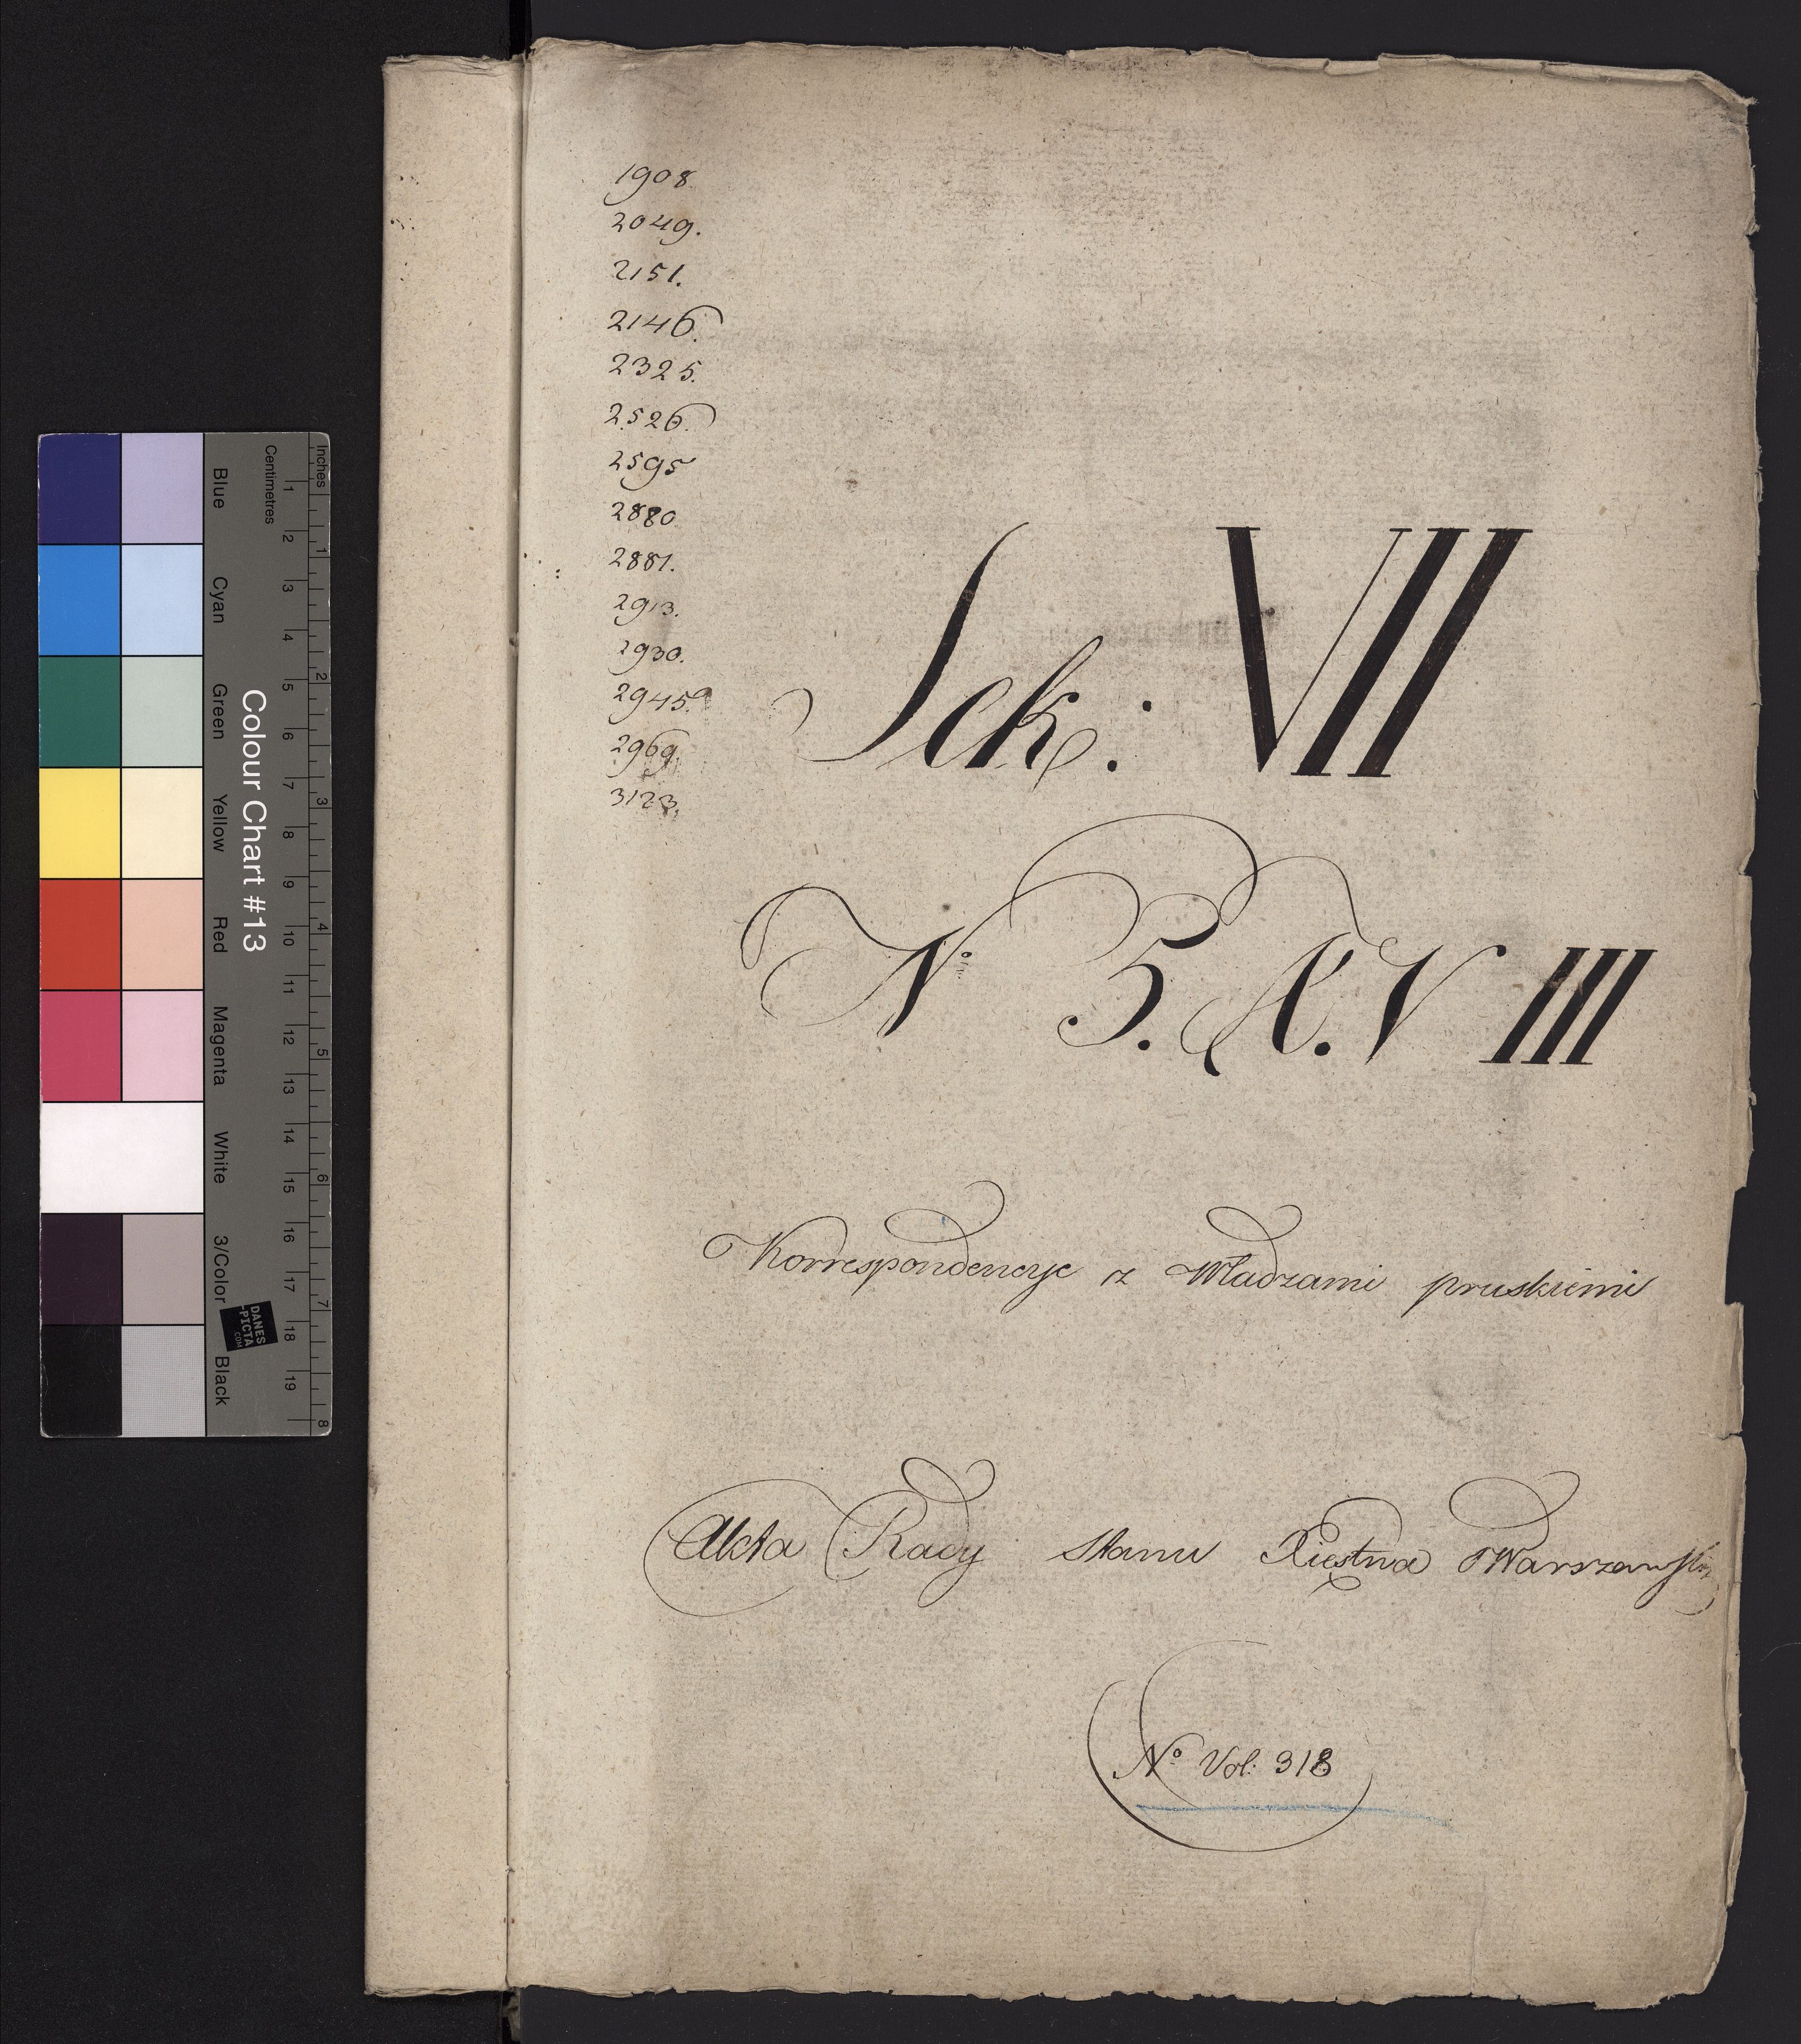 1908
2049.
2151.
2146.
2325.
2526.
2595
2880
2881.
2913.
2930.
2945.
2969.
3123.
Sek: VII
No 5. A. V III
Korrespondencye z Władzami pruskiemi
Akta Rady Stanu Xięstwa Warszawsk
No Vol: 318
Inches
Centimetres
1 2 3 4 5 6 7 8
1 2 3 4 5 6 7 8 9 10 11 12 13 14 15 16 17 18 19
Colour Chart #13
Blue
Cyan
Green
Yellow
Red
Magenta
White
3/Color
Black
DANES
-PICTA
.COM